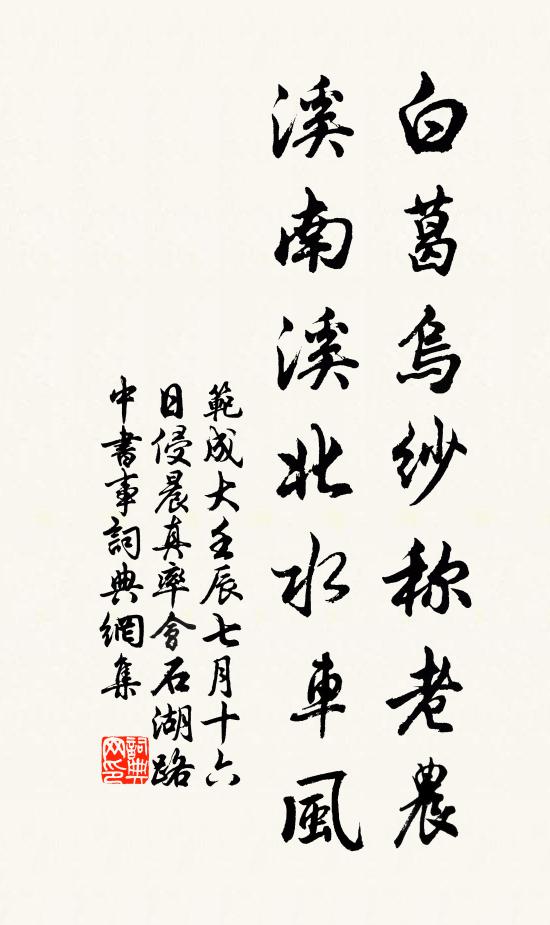 白葛烏紗称老農
溪南溪北水車風
範成大壬辰七月十六
日侵晨真率會石湖路
中書事詞典網集
詞典
网印